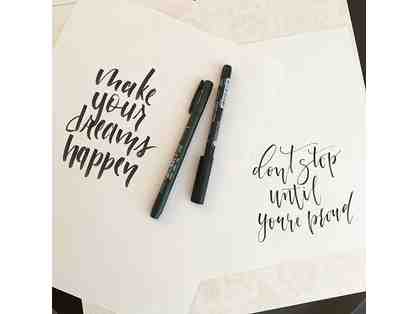 make
your
dreams
happen
don't stop
until
you're proud